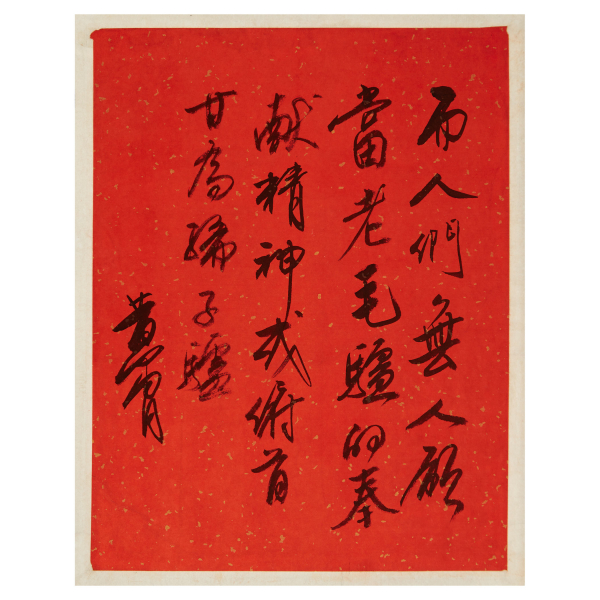 而人們無人願
當老毛驢的奉
献精神我俯首
甘為孺子驢
黄胄